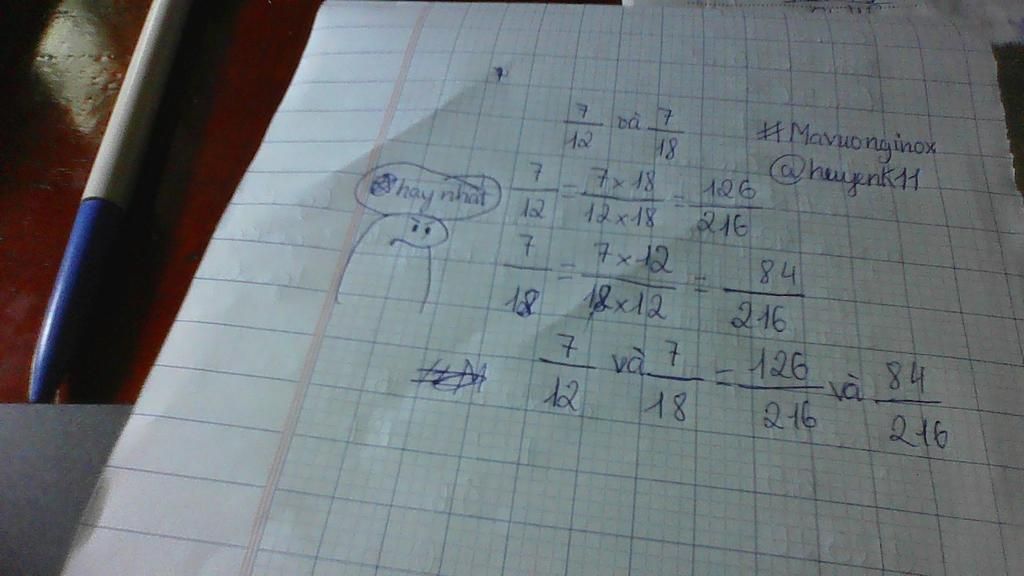 7/12 và 7/18
#Mavuonginox
@huyenk11
hay nhất
7/12 = 7×18/12×18 = 126/216
7/18 = 7×12/18×12 = 84/216
7/12 và 7/18 = 126/216 và 84/216